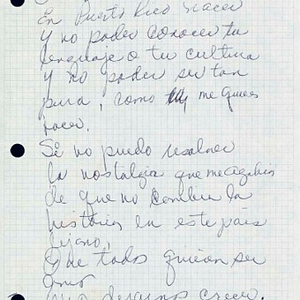 En Puerto Rico nacer
y no poder conocer tu
lenguaje o tu cultura
y no poder ser tan
pura, como me quieres
hacer.
Si no puedo resolver
la nostalgia que me
de que no cambie la
historia en este país
lejano,
Que todos quieren ser